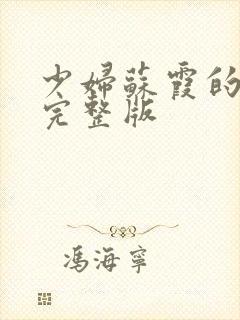 少婦蘇霞的
完整版
馮海寧